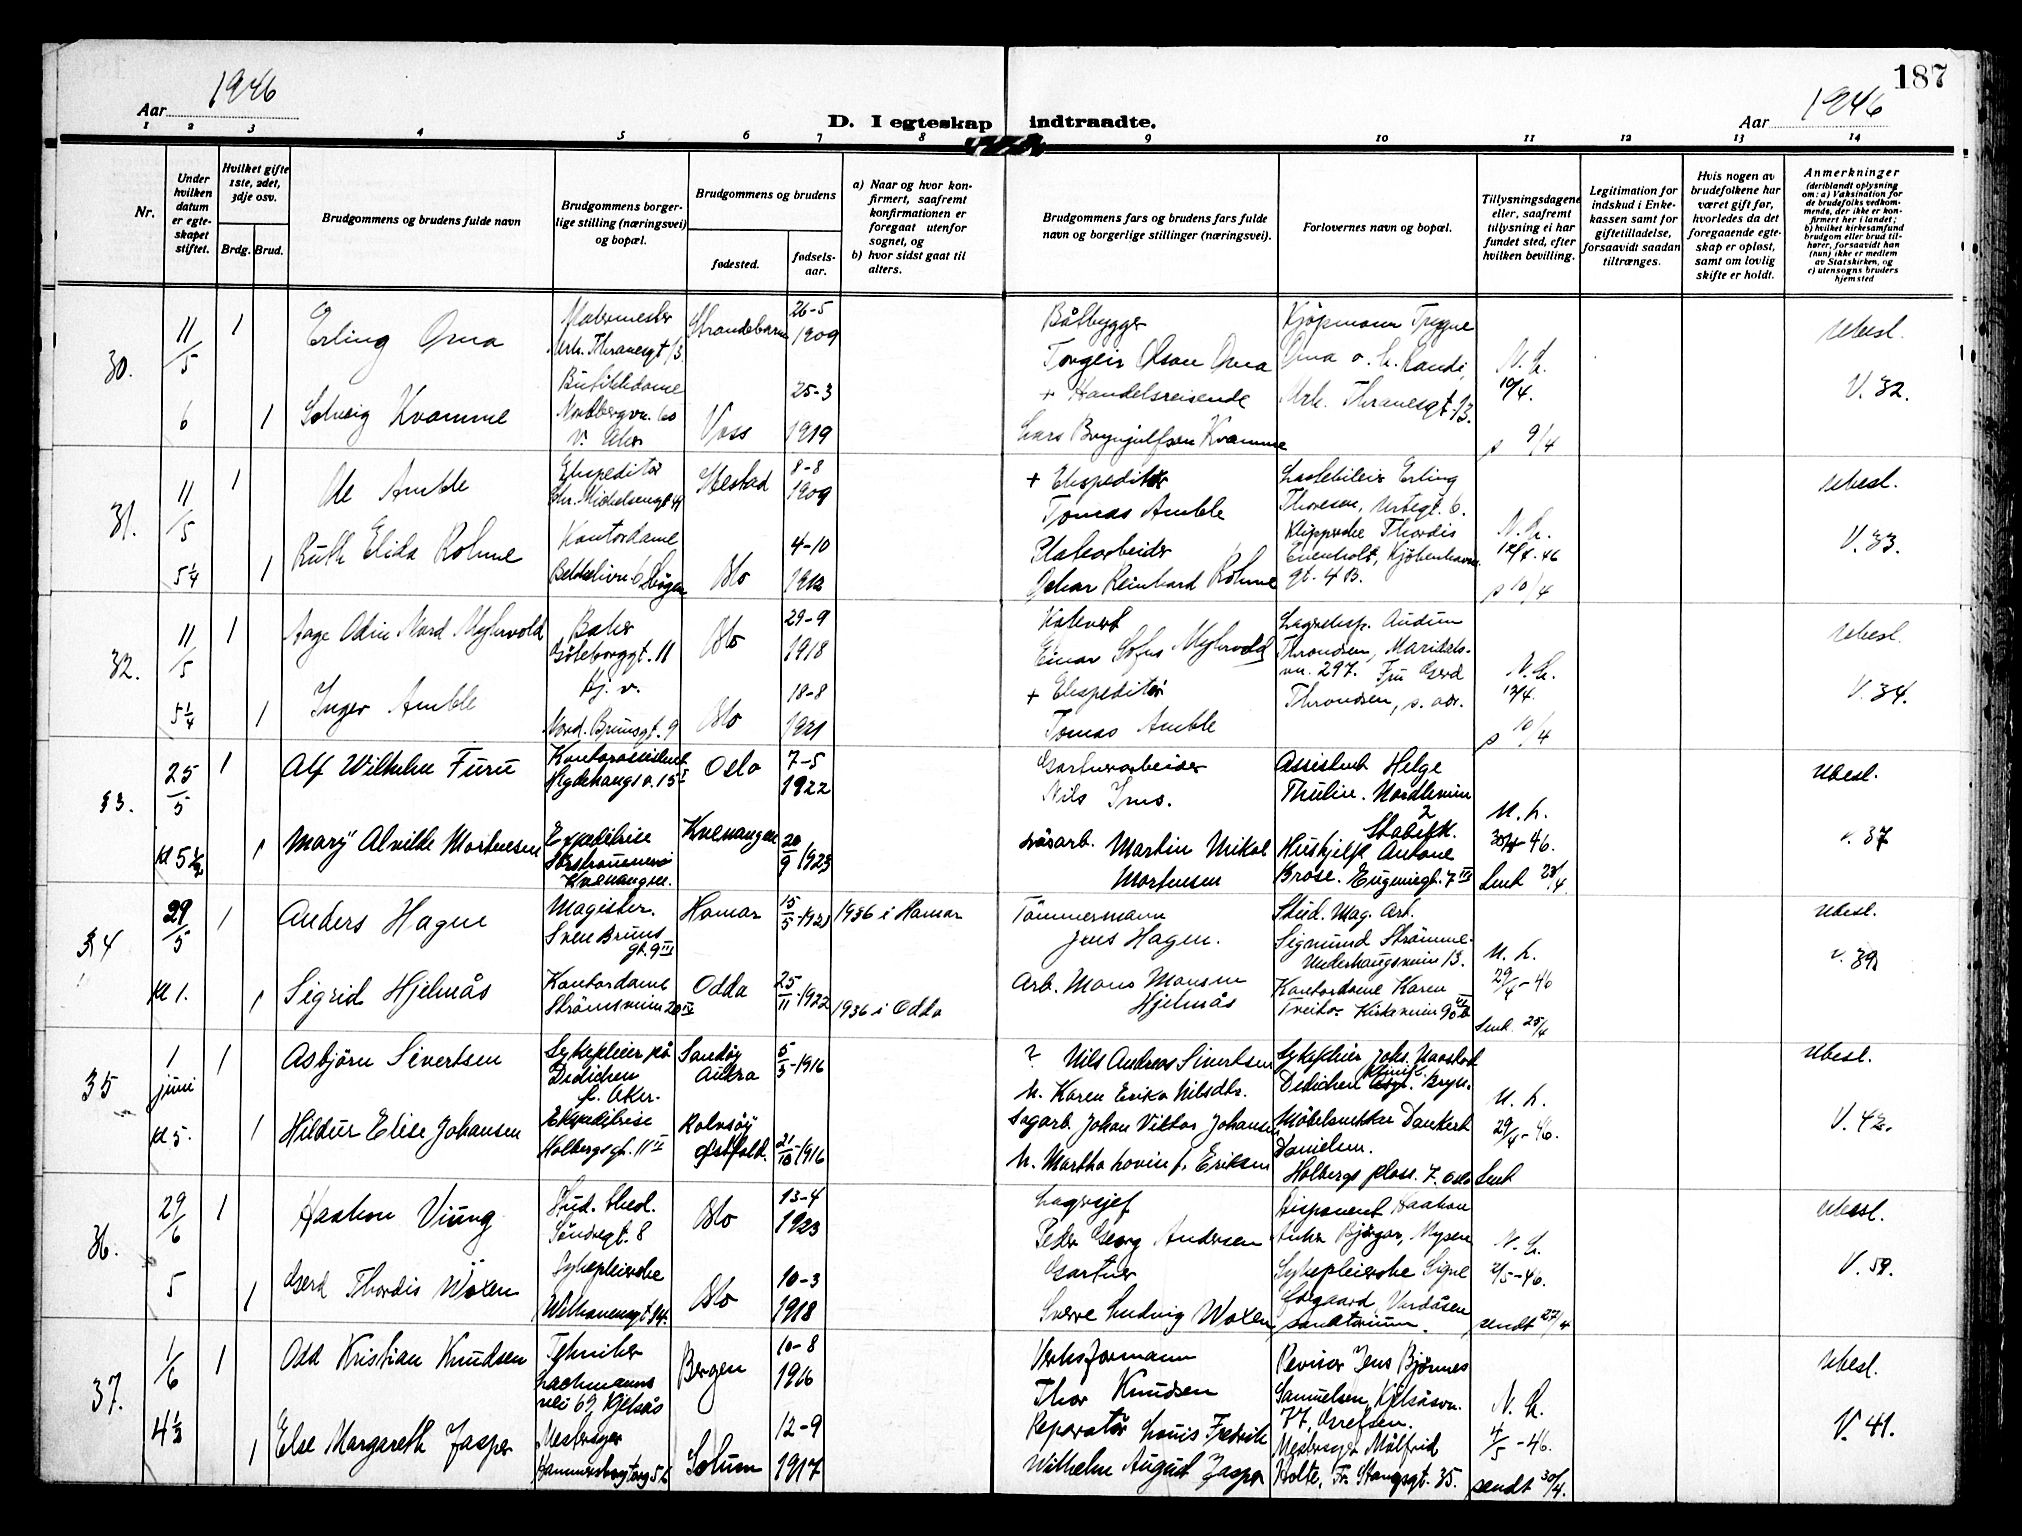 187
Aar 1946
D. I egteskap indtraadte.
Aar 1946
1 2 3 4 5 6 7 8 9 10 11 12 13 14
Nr.
Under hvilken datum er egteskapet stiftet.
Hvilket gifte 1ste, 2det, 3dje osv.
Brdg. Brud.
Brudgommens og brudens fulde navn
Brudgommens borgerlige stilling (næringsvei) og bopæl.
Brudgommens og brudens
fødested.
fødselsaar.
a) Naar og hvor konfirmert, saafremt konfirmationen er foregaat utenfor sognet, og
b) hvor sidst gaat til alters.
Brudgommens fars og brudens fars fulde navn og borgerlige stillinger (næringsvei).
Forlovernes navn og bopæl.
Tillysningsdagene eller, saafremt tillysning ei har fundet sted, efter hvilken bevilling.
Legitimation for indskud i Enkekassen samt for giftetilladelse, forsaavidt saadan tiltrænges.
Hvis nogen av brudefolkene har været gift før, hvorledes da det foregaaende egteskap er opløst, samt om lovlig skifte er holdt.
Anmerkninger
(deriblandt oplysning om: a) Vaksination for de brudefolks vedkommende, der ikke er konfirmert her i landet; b) hvilket kirkesamfund brudgom eller brud tilhører, forsaavidt han (hun) ikke er medlem av Statskirken, og c) utensogns bruders hjemsted
30. 11/5 1 Erling Oma
Malermester
Mrk. Thranesgt 13
Strandebarm
26-5
1909
Båtbygger
Torgeir Olson Oma
Kjøpmann Trygve
Oma o. h. Randi,
Mrk. Thranesgt. 13.
N. L.
10/4.
p 9/4
Ubesl.
V. 32.
6 1 Solveig Kvamme
Butikkdame
Nordbergvn. 60
V. Aker
Voss
25-3
1919
+ Handelsreisende
Lars Brynjulfsen Kvamme
31. 11/5 1 Ole Amble
Ekspeditør
Chr. Michelsensgt 4
8-8
1909
+ Ekspeditør
Tomas Amble
Lastebileier Erling
Thoresen, Urtegt. 6.
N. L.
p 10/4
Ubesl.
V. 33.
5 1/4 1 Ruth Elida Rohme
Kontordame
Oslo
4-10
1912
Platearbeider
Johan Reinhard Rohme
Thordis
Evenholt, Kjøbenhavns
gt. 4 B.
32. 11/5 1 Aage Odin Nord Myhrvold
Baker
Gøteborggt. 11
Oslo
29-9
1918
Einar Sofus Myhrvold
Lagereksp. Audun
Throndsen, Maridals-
vn. 297. Fru Gerd
Throndsen, s. adr.
N. L.
12/4.
p 10/4
Ubesl.
V. 34.
5 1/4 1 Inger Amble
Nord. Brunsgt. 9
Oslo
18-8
1921
+ Ekspeditør
Tomas Amble
33. 25/5 1 Alf Wilhelm Furu
Kontorassistent
Oslo
7-5
1922
Gartnerarbeider
Nils
Assistent Helge
Thulin. Nordheim
2
Stabekk.
U. L.
Sent
Ubesl.
V. 37
kl 5 1/2 1 Mary Alvilde Mortensen
Expeditrise
Kvenangen.
Kvenangen
20/9 1923
Martin Mikal
Mortensen
Hushjelp Antone
Brose. Eugeniegt. 7 III
34 29/5 1 Anders Hagen
Magister.
Sven Bruns
gt. 9 III
Hamar
15/5-1921
1936 i Hamar
Tømmermann
Jens Hagen.
Stud. Mag. Art.
Sigmund Strømme.
Underhaugsveien 13.
U. L.
29/4-46
Sent 25/4
Ubesl.
V. 39
kl 1. 1 Sigrid Hjelmås
Kontordame
Strømsveien 20 IV
Odda
25/11-1922
1936 i Odda
Arb. Mons Monsen
Hjelmås
Kontordame Karen
Kirkeveien 90
35 1 juni 1 Asbjørn Sivertsen
Sykepleier på
Dedichen
Ø. Aker.
Sandøy
Aukra
5/5-1916
? Nils Andreas Sivertsen
M. Karen Erika Nilsdtr.
Sykepleier Johs. Navstad
Dedichen klinik. Bryn.
U. L.
29/4-46.
Sent
Ubesl.
V. 42.
kl 5. 1 Hildur Elise Johansen
Ekspeditrise
Holbergs gt. 11 II
Rolvsøy
Østfold.
21/10-1916
Sagarb. Johan Viktor Johansen
M. Martha Lovise f. Eriksen
Møbelsnekker Dankert
Danielsen.
Holbergs plass. 7. Oslo
36. 29/6 1 Haakon Viung
Stud. theol.
Oslo
13-4
1923
Lagersjef
Peder Georg Andersen
Disponent Haakon
Anker Bjørgan, Mysen
N. L.
2/5-46.
sendt 27/4
Ubesl.
V. 58.
5 1 Gerd Thordis Woxen
Sykepleierske
Oslo
10-3
1918
Gartner
Sverre Ludvig Woxen
Sykepleierske Signe
Vardåsen
sanatorium.
37. 1/6 1 Odd Kristian Knudsen
Tekniker
Lachmanns
vei 69, Kjelsås
Bergen
10-8
1916
Verksformann
Thor Knudsen
Revisor Jens Bjørnes
Samuelsen, Kjelsåsvn.
77, Grefsen.
N. L.
4/5-46.
sendt 30/4.
Ubesl.
V. 41.
4 1/2 1 Else Margareth Jasper
Hammersborgtorg 5
Solum
12-9
1917
Reparatør Louis Fredrik
Wilhelm August Jasper
Målfrid
Holte, Fr. Stangsgt. 35.